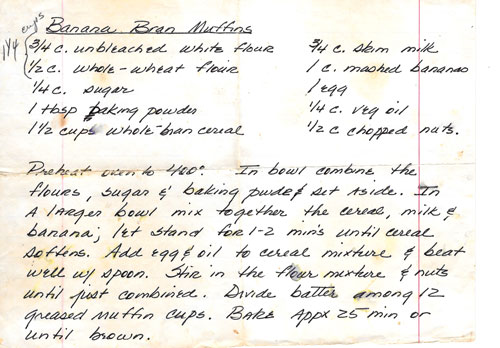 Banana Bran Muffins
cups
1 1/4
3/4 c. unbleached white flour
1/2 c. whole-wheat flour
1/4 c. sugar
1 tbsp baking powder
1 1/2 cups whole-bran cereal
3/4 c. skim milk
1 c. mashed bananas
1 egg
1/4 c. veg oil
1/2 c chopped nuts.
Preheat oven to 400°. In bowl combine the
flours, sugar & baking pwder set aside. In
A larger bowl mix together the cereal, milk &
banana; let stand for 1-2 min's until cereal
softens. Add egg & oil to cereal mixture & beat
well w/ spoon. Stir in the flour mixture & nuts
until just combined. Divide batter among 12
greased muffin cups. Bake Appx 25 min or
until brown.